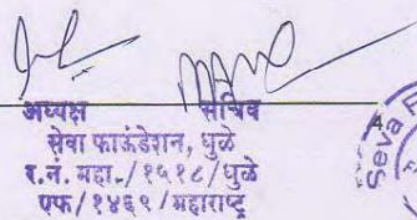 अध्यक्ष सचिव
सेवा फाऊंडेशन, धुळे
र.नं. महा./१५१८/धुळे
एफ/१४६९/महाराष्ट्र
Seva